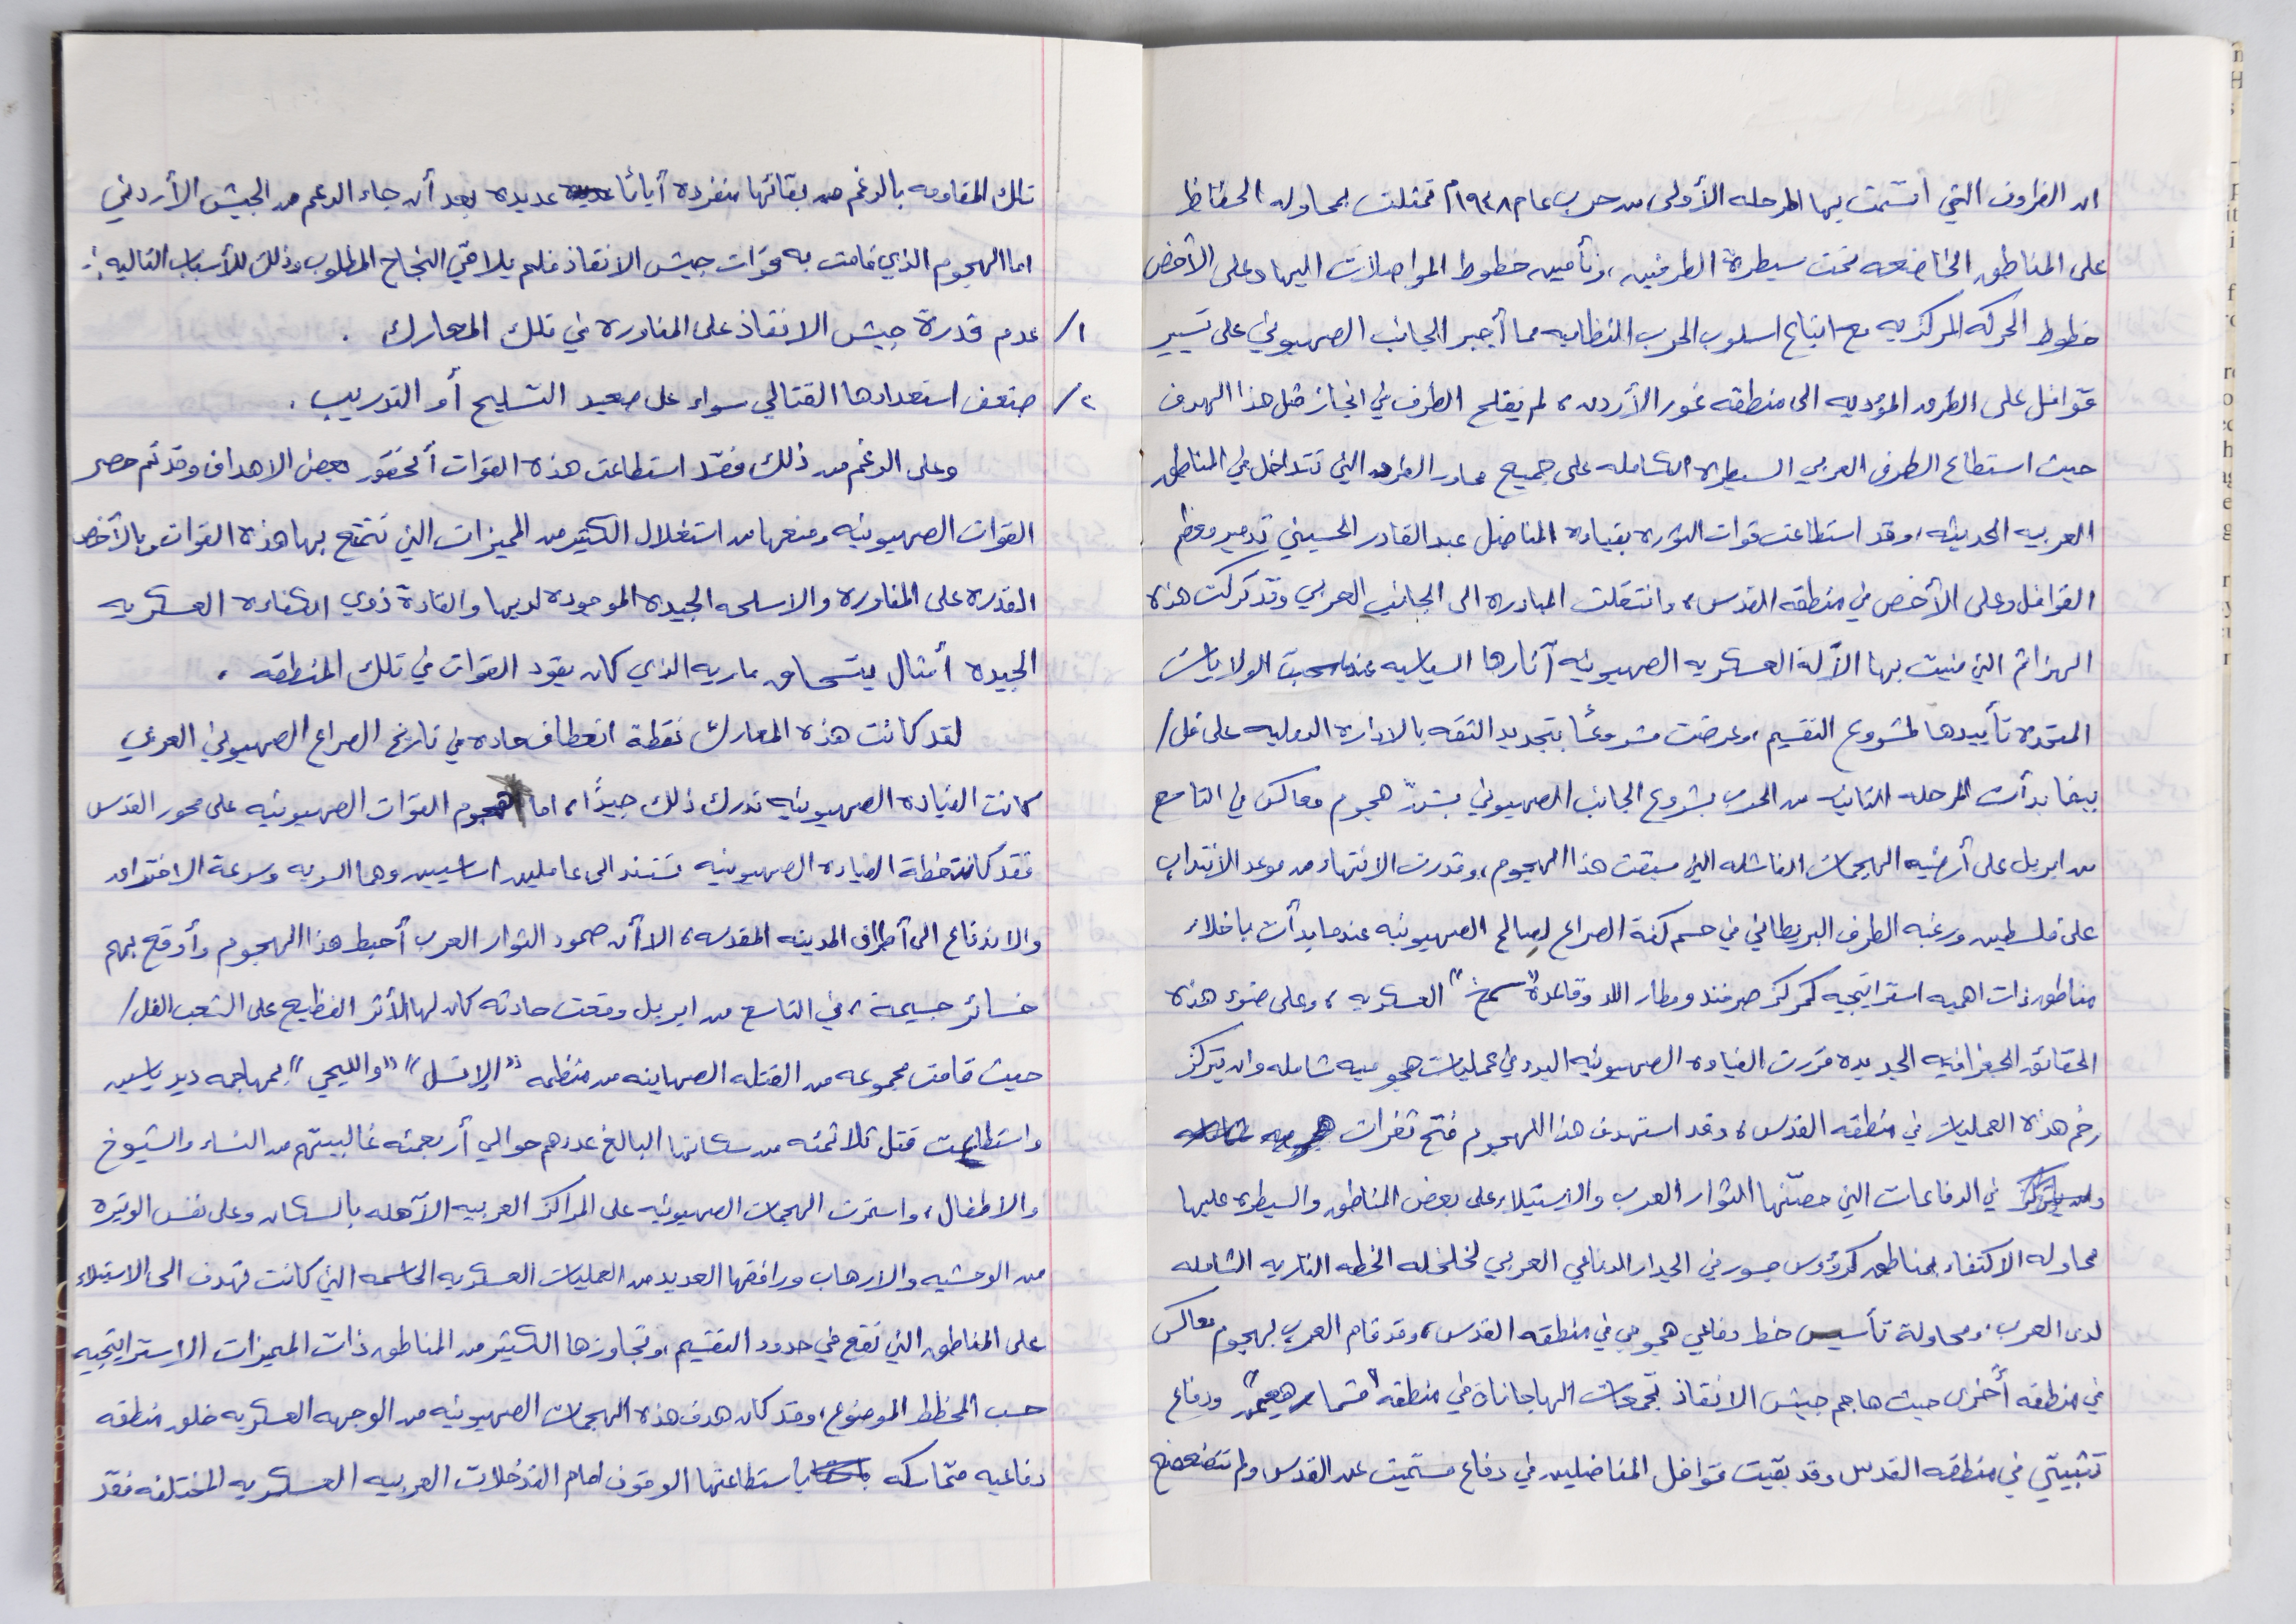 ان الظروف التي اتسمت بها المرحله الأولى من حرب عام ١٩٤٨م تمثلت بمحاوله الحفاظ
على المناطق الخاضعه تحت سيطرة الطرفين، وتأمين خطوط المواصلات اليها وعلى الأخص
خطوط الحركه المركزيه مع اتباع اسلوب الحرب النظاميه مما أجبر الجانب الصهيوني على تسيير
قوافل على الطرق المؤديه الى منطقه غور الأردن، لم يفلح الطرف في انجاز مثل هذا الهدف
حيث استطاع الطرف العربي السيطرة الكامله على جميع محاور الطرق التي تتداخل في المناطق
العربيه الحديثه، وقد استطاعت قوات الثوره بقياده المناضل عبد القادر الحسيني تدمير معظم
القوافل وعلى الأخص في منطقه القدس، وانتقلت المبادره الى الجانب العربي وقد تركت هذه
الهزائم التي منيت بها الآلة العسكريه الصهيونيه آثارها السياسيه عندما سحبت الولايات
المتحدة تأييدها لمشروع التقسيم، وعرضت مشروعًا بتجديد الثقه بالاداره الدوليه على فل/
بينما بدأت المرحله الثانيه من الحرب بشروع الجانب الصهيوني بشنّ هجوم معاكس في التاسع
من ابريل على أرضيه الهجمات الفاشله التي سبقت هذا الهجوم، وقدرت الانتهاء من موعد الانتداب
على فلسطين ورغبه الطرف البريطاني في حسم كفة الصراع لصالح الصهيونيه عندما بدأت باخلاء
مناطق ذات اهميه استراتيجيه كمركز صرفند ومطار اللد وقاعدة "سمخ" العسكريه، وعلى ضوء هذه
الحقائق الجغرافيه الجديده قررت القياده الصهيونيه البدء في عمليات هجوميه شامله وان يتركز
زخم هذه العمليات في منطقه القدس، وقد استهدف هذا الهجوم فتح ثغرات
في الدفاعات التي حصّنها الثوار العرب والاستيلاء على بعض المناطق والسيطره عليها
محاوله الاكتفاء بمناطق كرؤوس جسور في الجدار الدفاعي العربي لخلخله الخطه الناريه الشامله
لدى العرب، ومحاولة تأسيس خط دفاعي هجومي في منطقه القدس، وقد قام العرب بهجوم معاكس
في منطقه أخرى حيث هاجم جيش الانقاذ تجمعات الهاجاناة في منطقه "مشمار هعيمق" ودفاع
تثبيتي في منطقه القدس وقد بقيت قوافل المناضلين في دفاع مستميت عن القدس ولم تتضعضع
تلك المقاومه بالرغم من بقائها منفرده أيامًا عديده بعد أن جاء الدعم من الجيش الأردني
اما الهجوم الذي قامت به قوات جيش الانقاذ فلم يلاقي النجاح المطلوب وذلك للأسباب التاليه :-
١/ عدم قدرة جيش الانقاذ على المناوره في تلك المعارك .
٢/ ضعف استعدادها القتالي سواء على صعيد التسليح أو التدريب .
وعلى الرغم من ذلك فقد استطاعت هذه القوات أن تحقق بعض الاهداف وقد تم حصر
القوات الصهيونيه ومنعها من استغلال الكثير من الميزات التي تتمتع بها هذه القوات وبالأخص
القدره على المناوره والاسلحه الجيده الموجوده لديها والقادة ذوي الكفاءه العسكريه
الجيده أمثال يتسحاق ساريه الذي كان يقود القوات في تلك المنطقه .
لقد كانت هذه المعارك نقطة انعطاف حاده في تاريخ الصراع الصهيوني العربي
كانت القياده الصهيونيه تدرك ذلك جيدًا، اما هجوم القوات الصهيونيه على محور القدس
فقد كانت خطة القياده الصهيونيه تستند الى عاملين اساسيين وهما السريه وسرعة الاختراق
والاندفاع الى أطراف المدينه المقدسه، الا أن صمود الثوار العرب أحبط هذا الهجوم وأوقع بهم
خسائر جسيمة، في التاسع من ابريل وقعت حادثه كان لها الأثر الفظيع على الشعب الفل/
حيث قامت مجموعه من القتله الصهاينه من منظمه "الإتسل" "والليحي" بمهاجمه دير ياسين
واستطاعت قتل ثلاثمئه من سكانها البالغ عددهم حوالي أربعمئه غالبيتهم من النساء والشيوخ
والاطفال، واستمرت الهجمات الصهيونيه على المراكز العربيه الآهله بالسكان وعلى نفس الوتيرة
من الوحشيه والارهاب ورافقها العديد من العمليات العسكريه الحاسمه التي كانت تهدف الى الاستيلاء
على المناطق التي تقع في حدود التقسيم، وتجاوزها الكثير من المناطق ذات الميزات الاستراتيجيه
حسب المخطط الموضوع، وقد كان هدف هذه الهجمات الصهيونيه من الوجهه العسكريه خلق منطقه
دفاعيه متماسكه باستطاعتها الوقوف امام التدخلات العربيه العسكريه المختلفه فقد